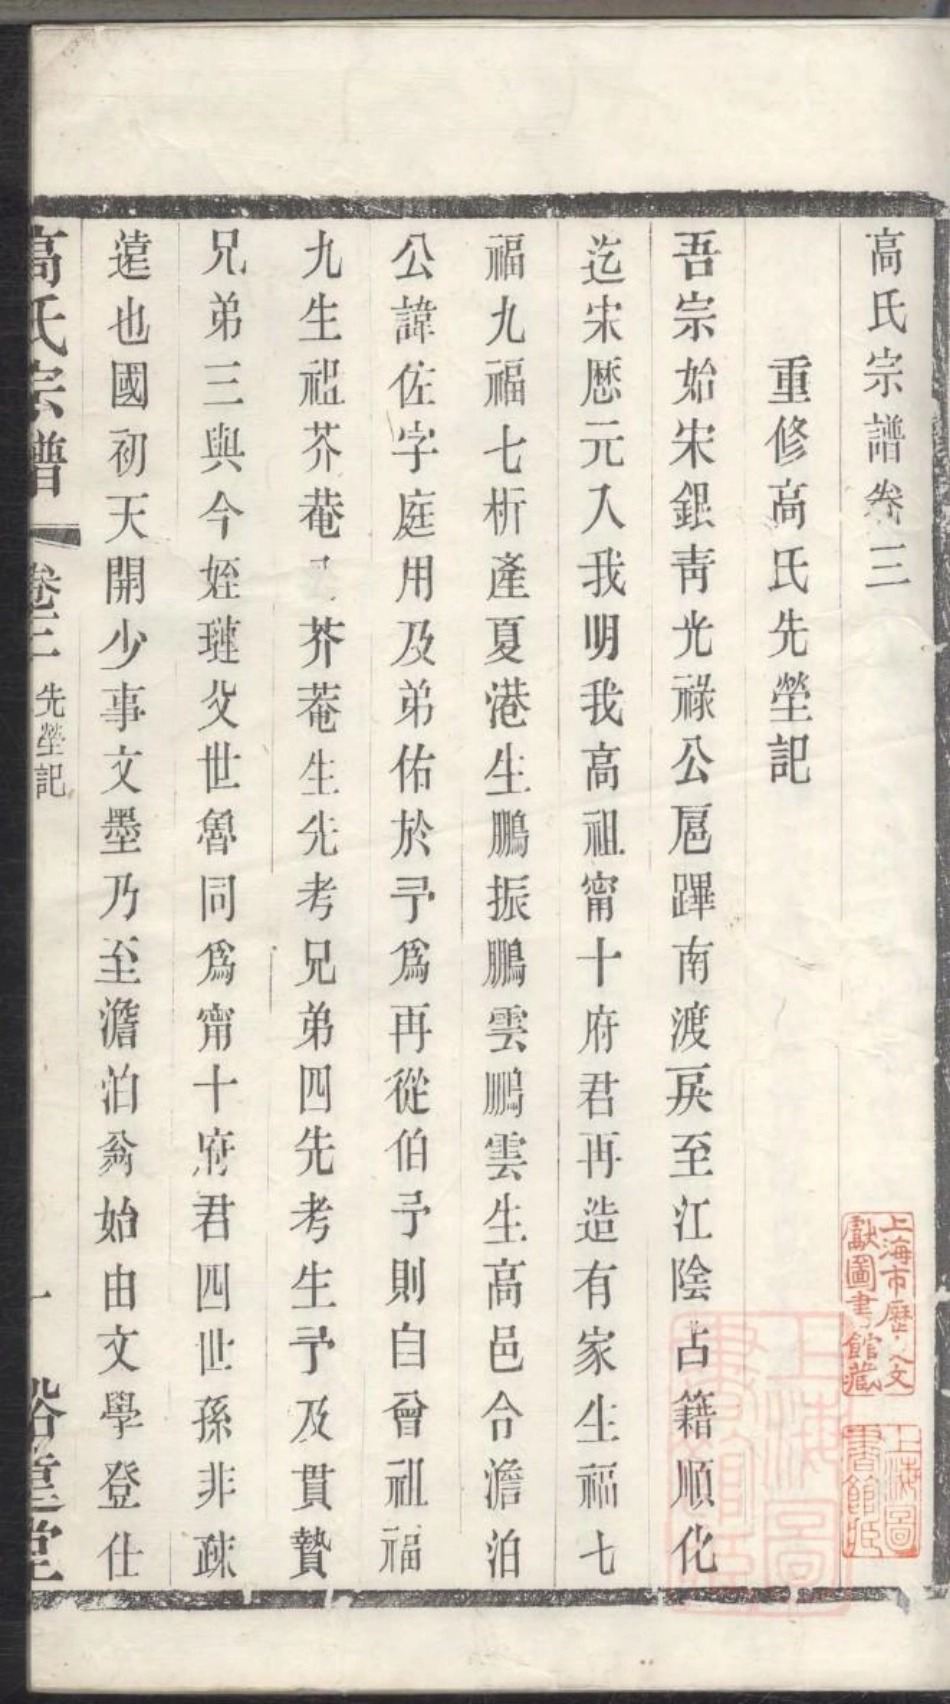 高氏宗譜卷三
重修高氏先塋記
吾宗始宋銀青光祿公扈蹕南渡戾至江陰占籍順化
迄宋歴元入我明我高祖甯十府君再造有家生福七
福九福七析產夏港生鵬振鵬雲鵬雲生高邑令澹泊
公諱佐字庭用及弟佑於予爲再從伯予則自曾祖福
九生祖芥菴芥菴生先考兄弟四先考生予及貫贄
兄弟三與今姪璉父世魯同爲甯十府君四世孫非疎
遠也國初天開少事文墨乃至澹泊翁始由文學登仕
高氏宗譜
卷三
先塋記
一
裕萱堂
上海市歷史文
獻圖書館藏
上海圖
書館藏
上海圖
書館藏